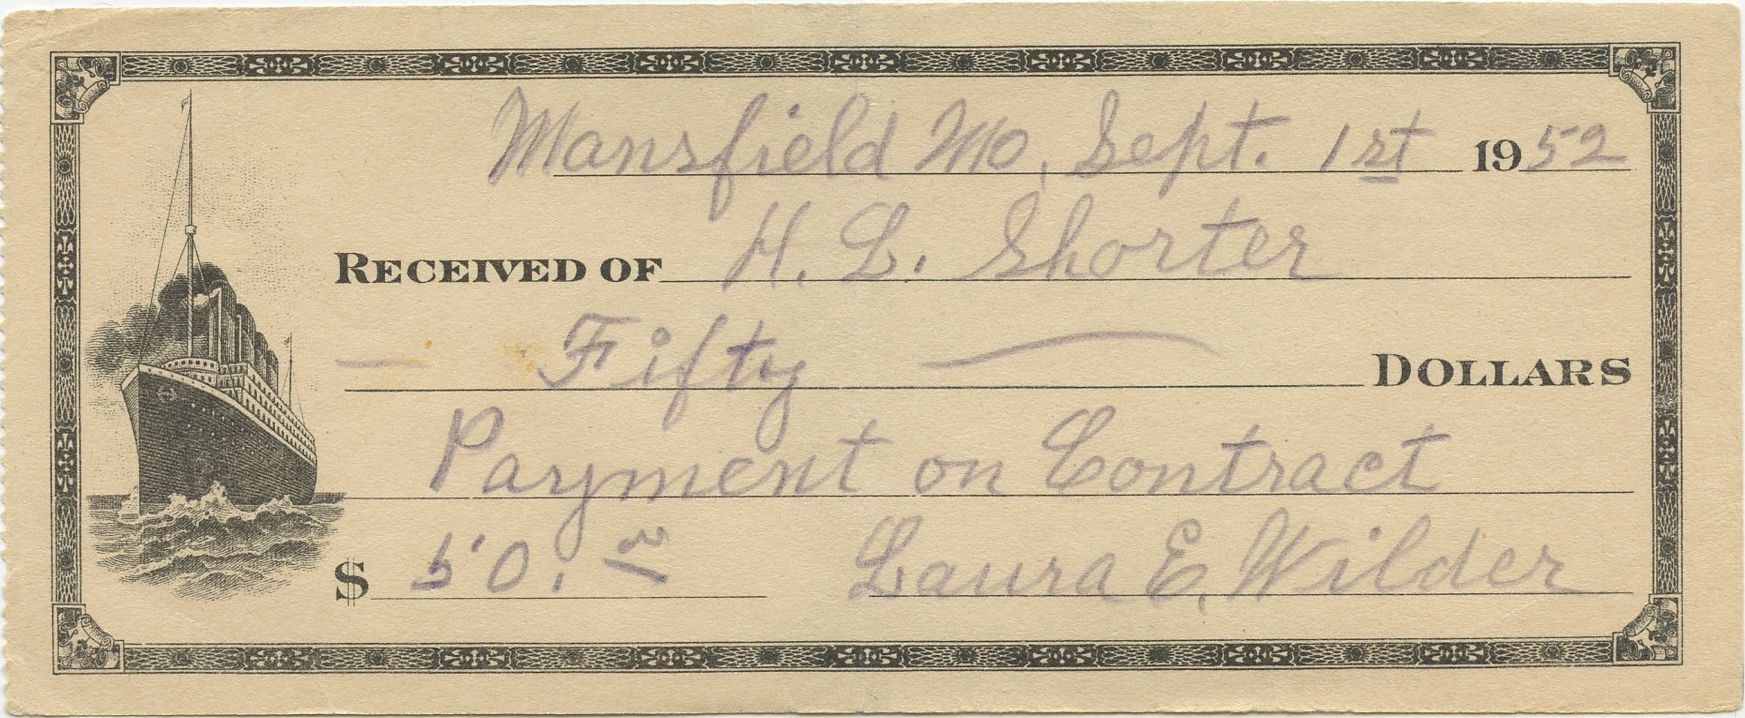 Mansfield Mo, Sept. 1st 1952
RECEIVED OF H. L. Shorter
— Fifty — DOLLARS
Payment on Contract
$ 50.00 Laura E. Wilder